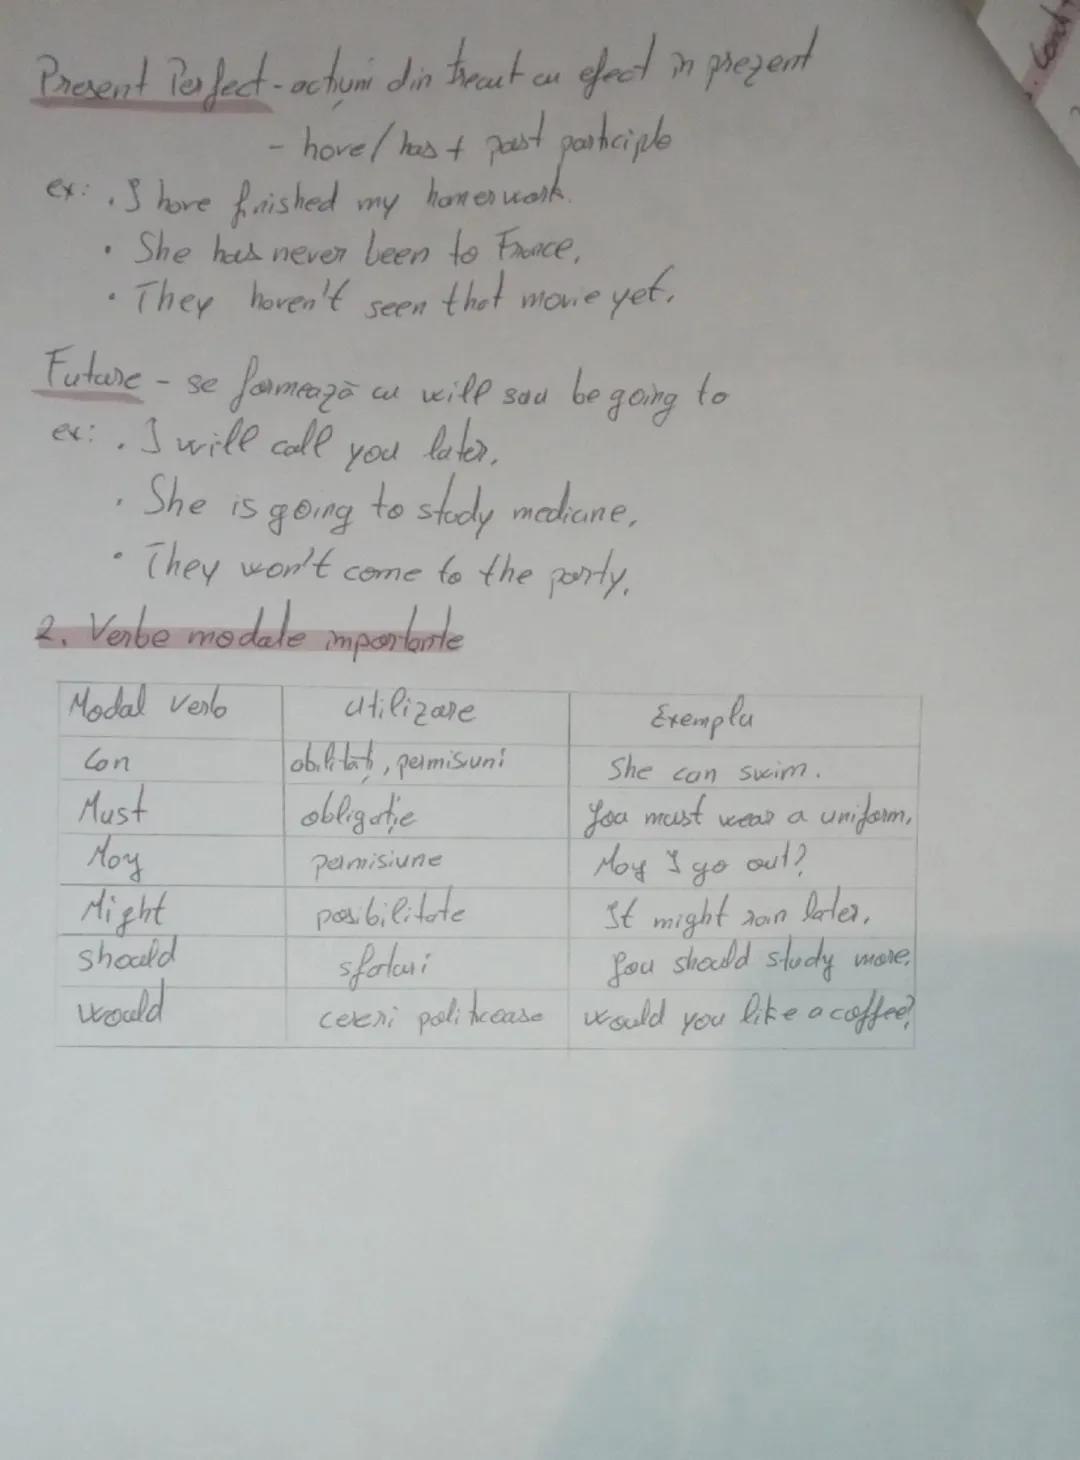 Present Perfect - acțiuni din trecut cu efect în prezent
- have/has + past participle
ex: . I have finished my homework.
• She has never been to France.
• They haven't seen that movie yet.
Future - se formează cu will sau be going to
ex: . I will call you later.
• She is going to study medicine.
• They won't come to the party.
2. Verbe modale importante
Modal verb Utilizare Exemplu
Can abilități, permisiuni She can swim.
Must obligație You must wear a uniform.
May permisiune May I go out?
Might posibilitate It might rain later.
should sfaturi You should study more.
would cereri politicoase would you like a coffee?